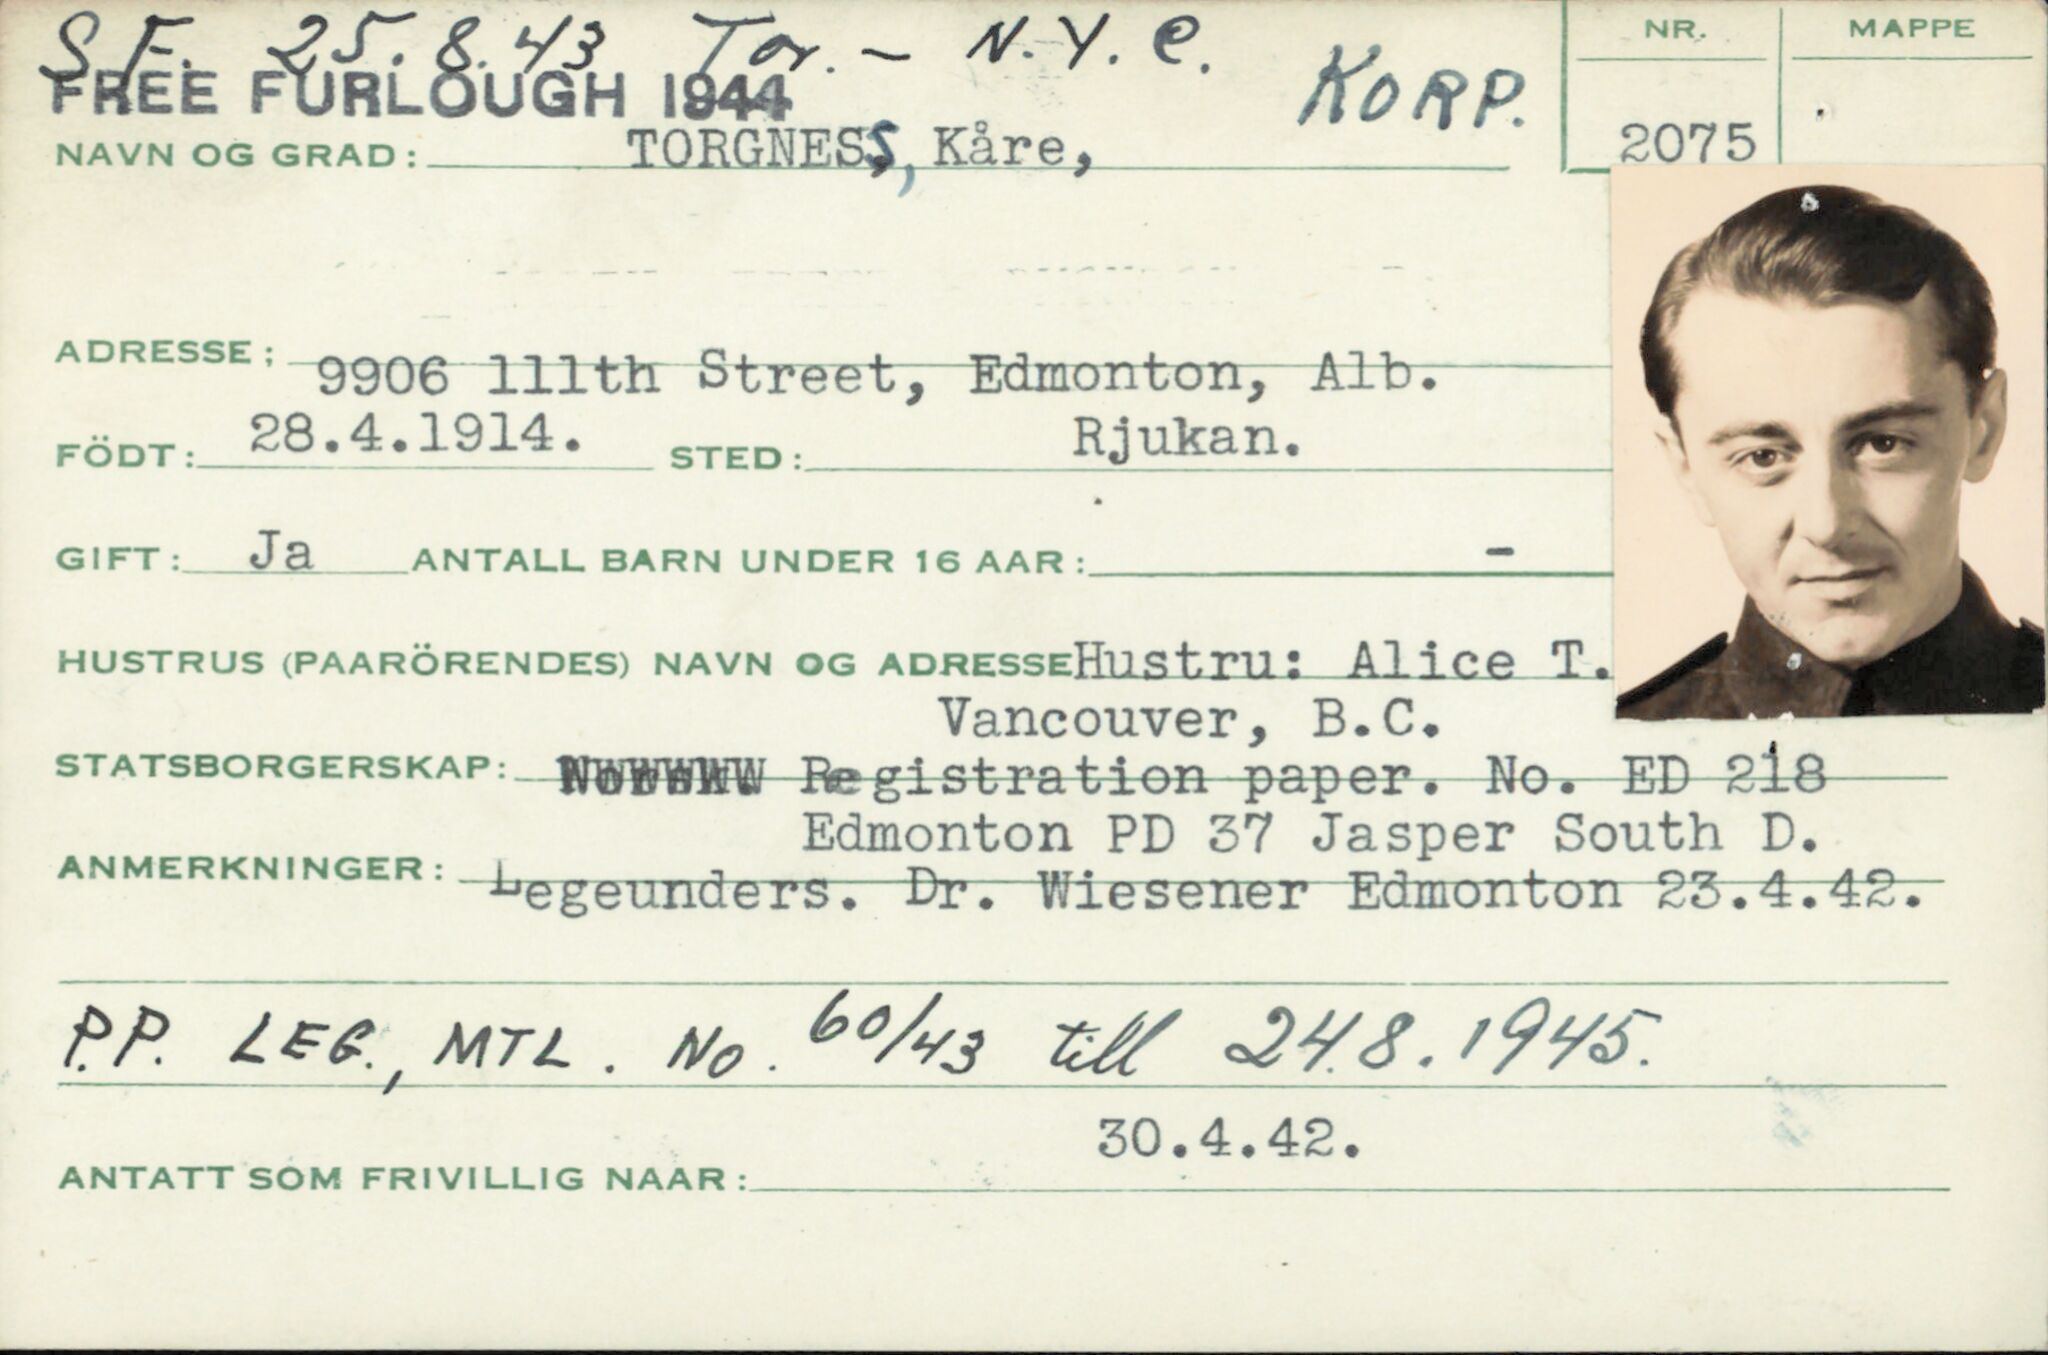 S.F. 25.8.43 Tor. – N.Y.C.
FREE FURLOUGH 1944
KORP.
NR. MAPPE
2075
NAVN OG GRAD: TORGNESS, Kåre,
ADRESSE: 9906 111th Street, Edmonton, Alb.
FÖDT: 28.4.1914. STED: Rjukan.
GIFT: Ja ANTALL BARN UNDER 16 AAR: -
HUSTRUS (PAARÖRENDES) NAVN OG ADRESSE Hustru: Alice T.
Vancouver, B.C.
STATSBORGERSKAP: Registration paper. No. ED 218
Edmonton PD 37 Jasper South D.
ANMERKNINGER: Legeunders. Dr. Wiesener Edmonton 23.4.42.
P.P. LEG., MTL. No. 60/43 till 24.8.1945.
30.4.42.
ANTATT SOM FRIVILLIG NAAR: